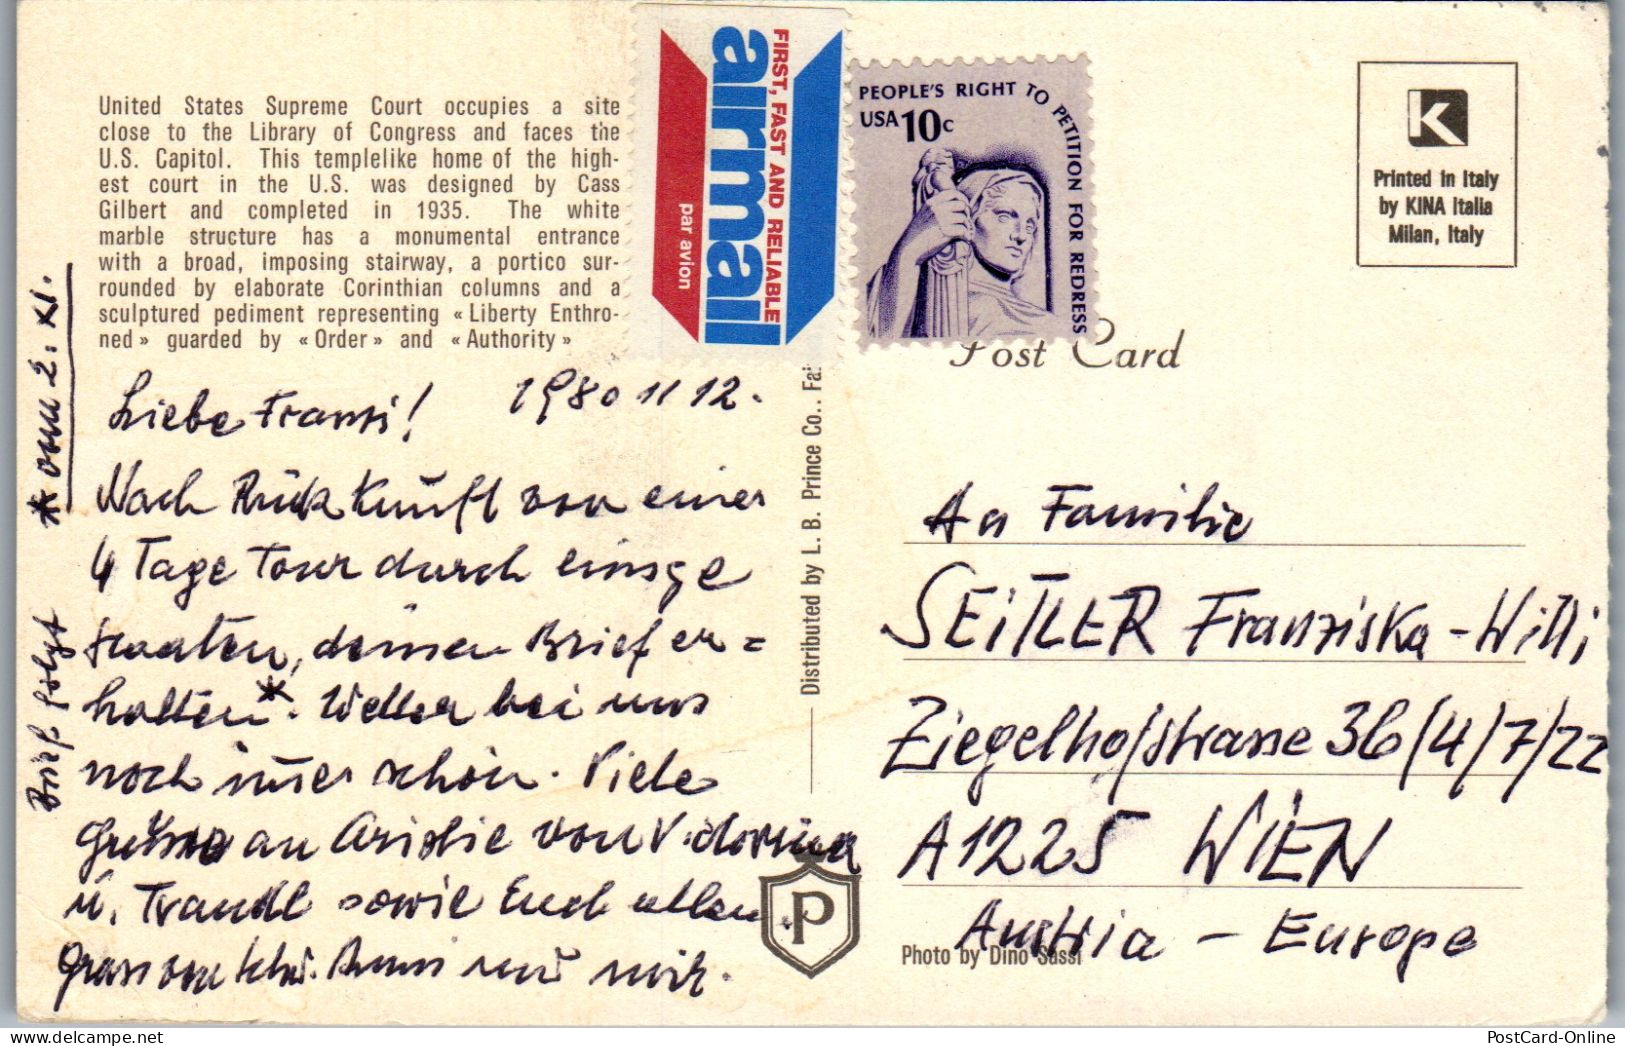 United States Supreme Court occupies a site
close to the Library of Congress and faces the
U.S. Capitol. This templelike home of the high-
est court in the U.S. was designed by Cass
Gilbert and completed in 1935. The white
marble structure has a monumental entrance
with a broad, imposing stairway, a portico sur-
rounded by elaborate Corinthian columns and a
sculptured pediment representing «Liberty Enthro-
ned» guarded by «Order» and «Authority»
FIRST, FAST AND RELIABLE
airmail
par avion
PEOPLE'S RIGHT TO PETITION FOR REDRESS
USA 10c
K
Printed in Italy
by KINA Italia
Milan, Italy
Post Card
1980 11 12.
Liebe Franzi!
Nach Rückkunft von einer
4 Tage Tour durch einige
Staaten, deinen Brief er=
halten*. Wetter bei uns
noch immer schön. Viele
Grüsse an von
u. Traudl sowie Euch allen
von und mir.
* vom 2. XI.
Brief folgt
Distributed by L. B. Prince Co., Fai
P
An Familie
SEITLER Franziska-Willi
Ziegelhofstrasse 36/4/7/22
A1225 WIEN
Austria - Europe
Photo by Dino Sassi
PostCard-Online